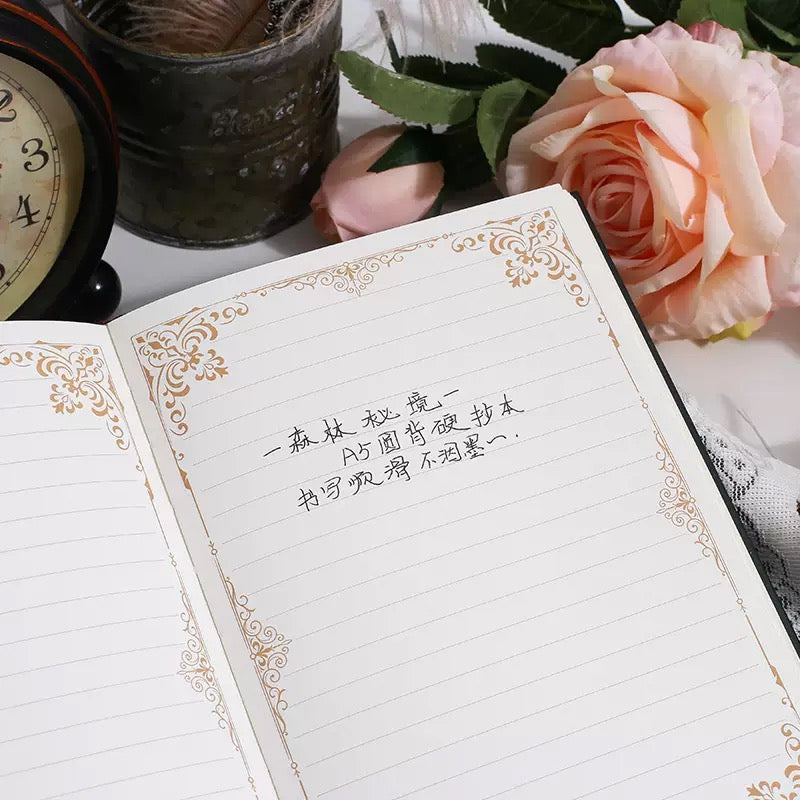 一森林秘境一
A5圆背硬抄本
书写顺滑不洇墨~.
2
3
4